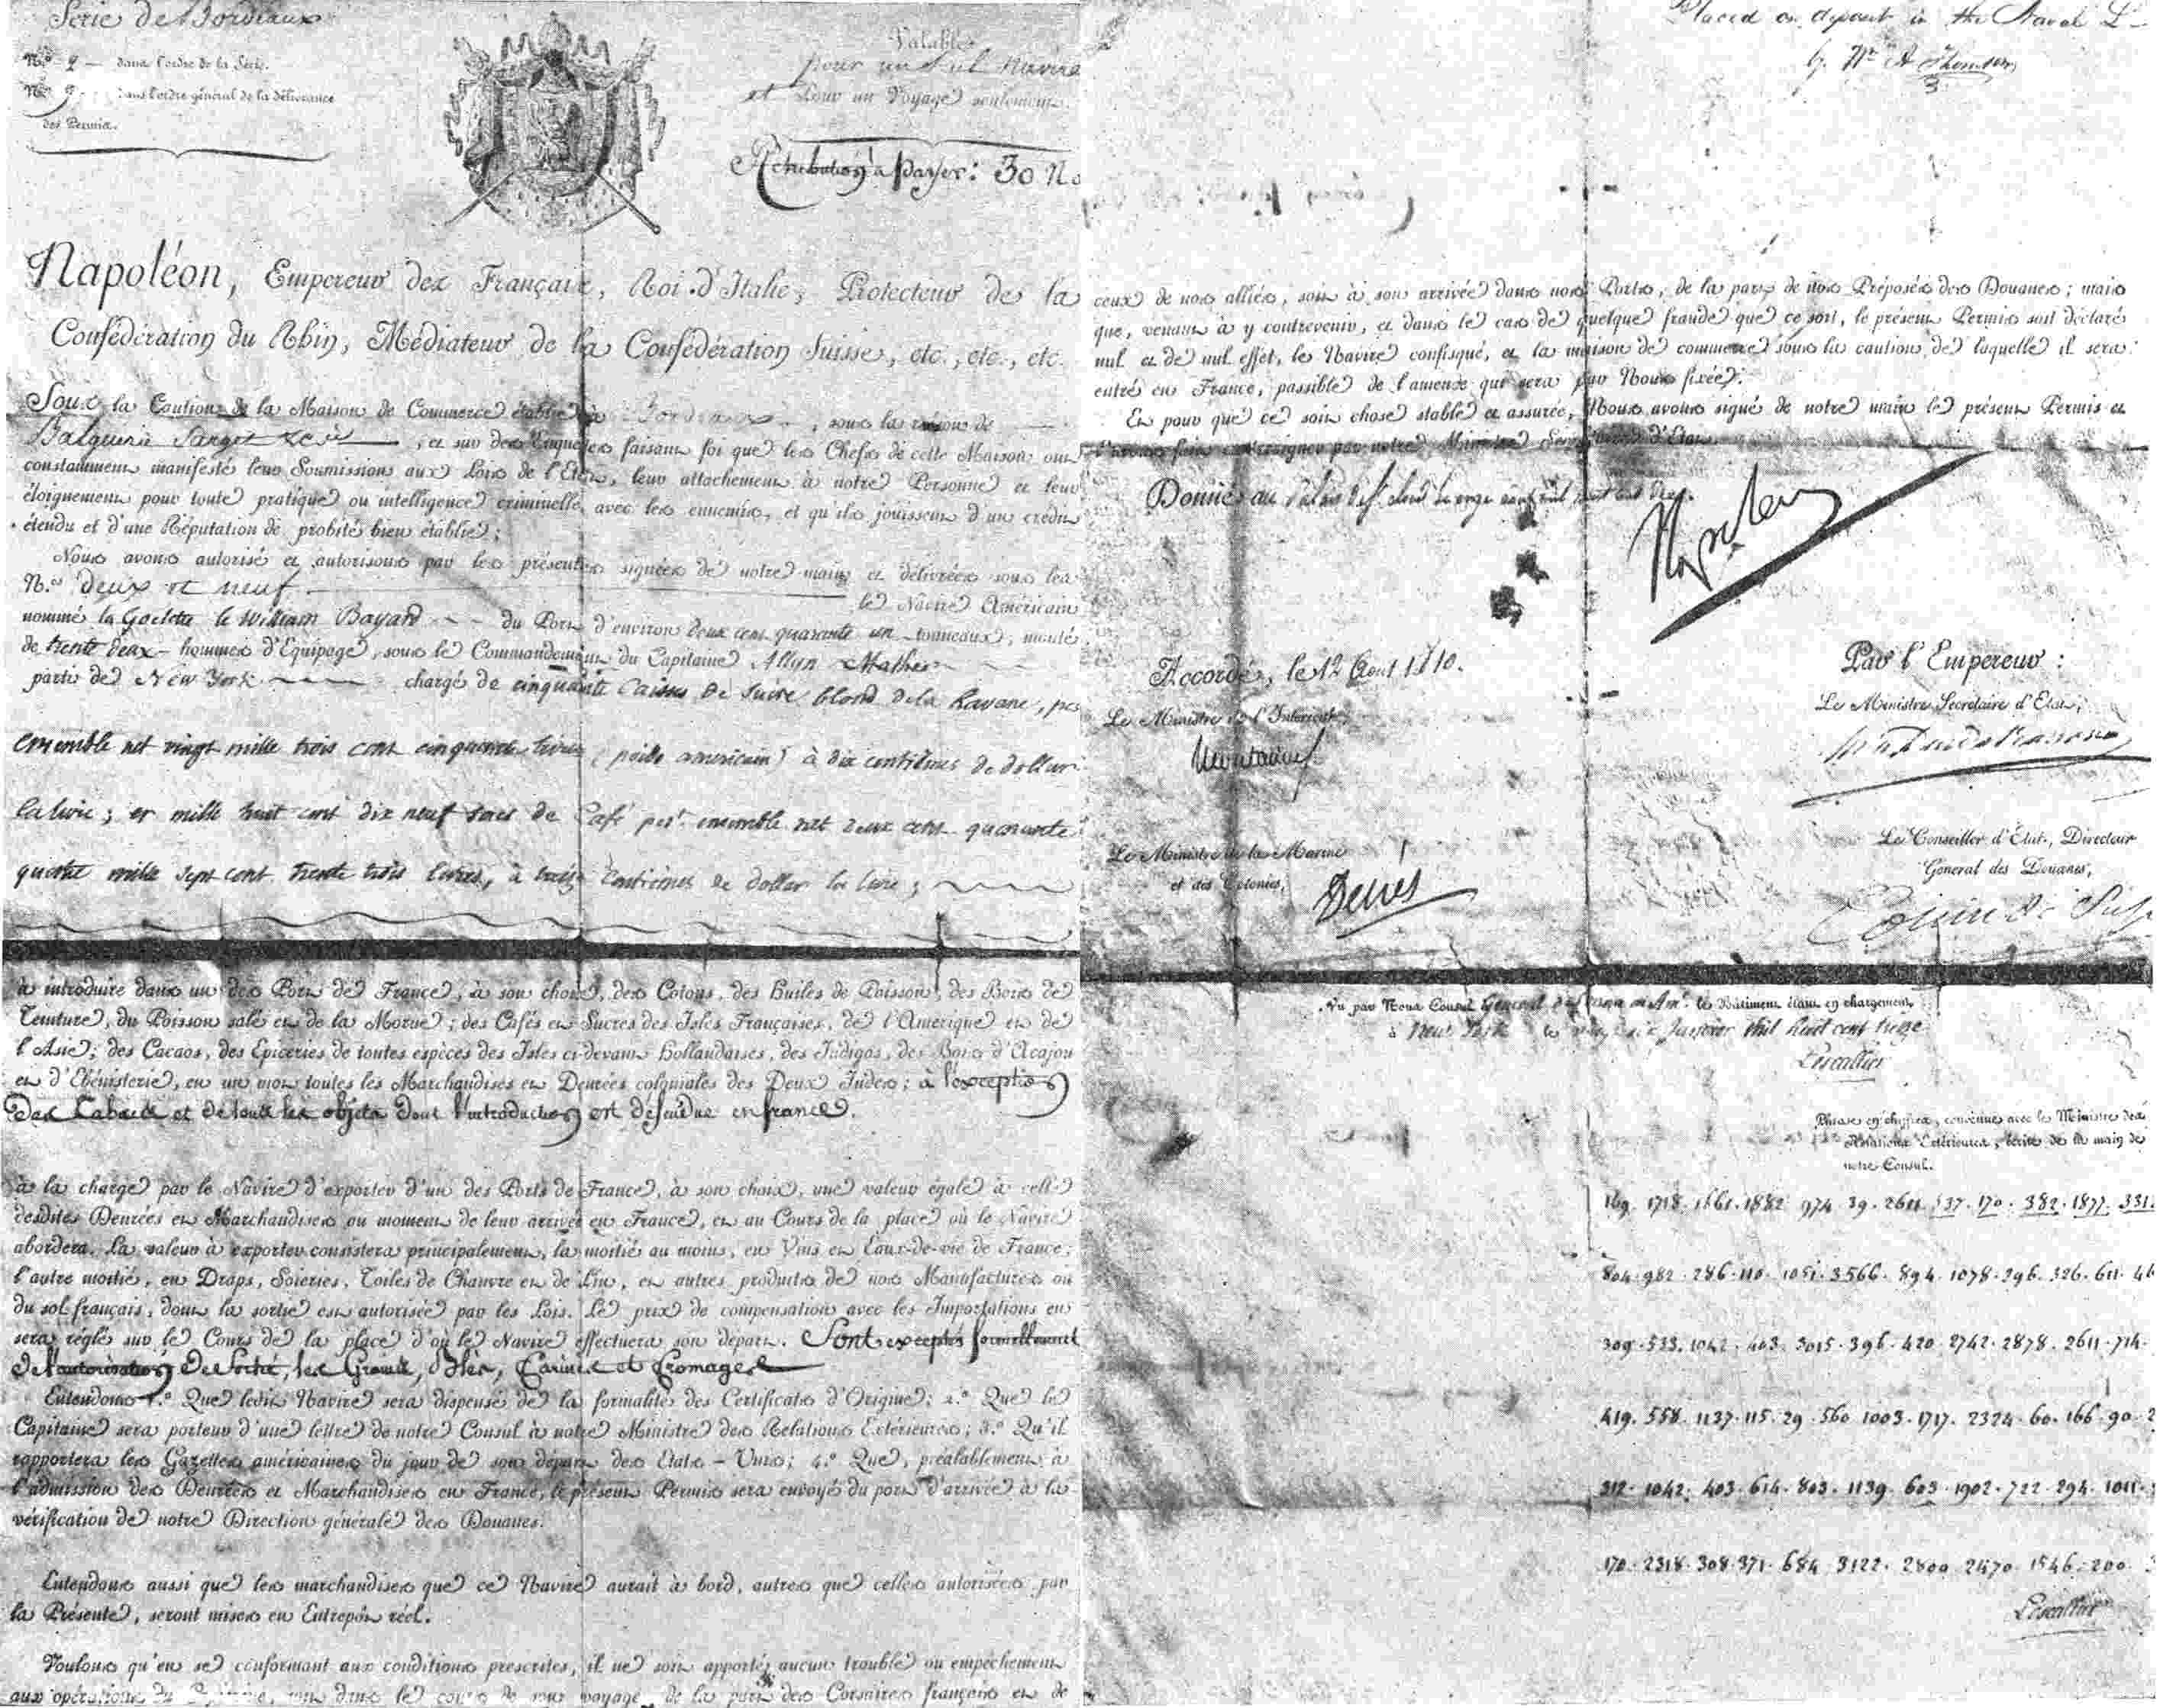 Serie de Bordeaux
N.º 2 — dans l'ordre de la Série.
N.º 9 — dans l'ordre général de la délivrance
des Permis.
Valable
pour un seul Navire
et pour un Voyage seulement.
Rétribution à payer: 30 No
Napoléon, Empereur des Français, Roi d'Italie, Protecteur de la
Confédération du Rhin, Médiateur de la Confédération Suisse, etc., etc., etc.
Sous la Caution de la Maison de Commerce établie à Bordeaux, sous la raison de
Balguerie Sarget & Cie, et sur des Enquêtes faisant foi que les Chefs de cette Maison ont
constamment manifesté leur Soumission aux Lois de l'Etat, leur attachement à notre Personne et leur
éloignement pour toute pratique ou intelligence criminelle avec les ennemis, et qu'ils jouissent d'un crédit
étendu et d'une Réputation de probité bien établie;
Nous avons autorisé et autorisons par les présentes signées de notre main et délivrées sous les
N.os deux et neuf le Navire Américain
nommé la Goelette le William Bayard du Port d'environ deux cent quarante un tonneaux, monté
de trente deux hommes d'Equipage, sous le Commandement du Capitaine Allyn Mather
parti de New York chargé de cinquante Caisses de Sucre blond de la havane, pes
ensemble net vingt mille trois cent cinquante livres (poids americain) à dix centièmes de dollar
la livre; et mille huit cent dix neuf sacs de Café pest ensemble net deux cent quarante
quatre mille sept cent trente trois livres, à treize centièmes de dollar la livre;
à introduire dans un des Ports de France, à son choix, des Cotons, des Huiles de Poisson, des Bois de
Teinture, du Poisson salé et de la Morue; des Cafés et Sucres des Isles Françaises, de l'Amérique et de
l'Asie; des Cacaos, des Epiceries de toutes espèces des Isles ci-devant Hollandaises, des Indigos, des Bois d'Acajou
et d'Ebénisterie, en un mot toutes les Marchandises et Denrées coloniales des Deux Indes; à l'exception
des Tabacs et de tous les objets dont l'introduction est défendue en france.
à la charge par le Navire d'exporter d'un des Ports de France, à son choix, une valeur égale à celle
desdites Denrées et Marchandises au moment de leur arrivée en France, et au Cours de la place où le Navire
abordera. La valeur à exporter consistera principalement, la moitié au moins, en Vins et Eaux-de-vie de France;
l'autre moitié, en Draps, Soieries, Toiles de Chanvre et de Lin, et autres produits de nos Manufactures ou
du sol français, dont la sortie est autorisée par les Lois. Le prix de compensation avec les Importations en
sera réglé sur le Cours de la place d'où le Navire effectuera son départ. Sont exceptés formellement
de l'autorisation de Sortie, les Grains, Farines et Fromages
Entendons 1.º Que ledit Navire sera dispensé de la formalité des Certificats d'Origine; 2.º Que le
Capitaine sera porteur d'une lettre de notre Consul à notre Ministre des Relations Extérieures; 3.º Qu'il
rapportera les Gazettes américaines du jour de son départ des Etats-Unis; 4.º Que, préalablement à
l'admission des Denrées et Marchandises en France, le présent Permis sera envoyé du port d'arrivée à la
vérification de notre Direction générale des Douanes.
Entendons aussi que les marchandises que ce Navire aurait à bord, autres que celles autorisées par
la Présente, seront mises en Entrepôt réel.
Voulons qu'en se conformant aux conditions prescrites, il ne soit apporté aucun trouble ou empêchement
aux opérations du Navire, soit dans le cours de son voyage, de la part des Corsaires français et de
Placed on deposit in the Naval
by Wm A Thomson
ceux de nos alliés, soit à son arrivée dans nos Ports, de la part de nos Préposés des Douanes; mais
que, venant à y contrevenir, et dans le cas de quelque fraude que ce soit, le présent Permis soit déclaré
nul et de nul effet, le Navire confisqué, et la maison de commerce sous la caution de laquelle il sera
entré en France, passible de l'amende qui sera par Nous fixée.
Et pour que ce soit chose stable et assurée, Nous avons signé de notre main le présent Permis et
l'avons fait contresigner par notre Ministre Secrétaire d'Etat.
Donné au Palais de St. Cloud le onze aout mil huit cent dix.
Accordé, le 12 Aout 1810.
Par l'Empereur:
Le Ministre de l'Intérieur,
Le Ministre Secrétaire d'Etat,
Montalivet
Le Ministre de la Marine
et des Colonies,
Decrès
Le Conseiller d'Etat, Directeur
Général des Douanes,
Collin de Sus
Vu par Nous Consul Général le Bâtiment étant en chargement
à New York le vingt six Janvier Mil huit cent treize
Lescallier
Phrase en chiffres, convenue avec le Ministre des
Relations Extérieures, écrite de la main de
notre Consul.
169. 1718. 1861. 1882. 974. 39. 2611. 537. 170. 382. 1877. 331.
804. 982. 286. 110. 1051. 3566. 894. 1078. 396. 326. 611. 46
309. 533. 1042. 403. 3015. 396. 420. 2742. 2878. 2611. 714.
419. 558. 1137. 115. 29. 560. 1003. 1717. 2324. 60. 166. 90. 2
312. 1042. 403. 614. 803. 1139. 603. 1902. 722. 294. 1011.
170. 2318. 308. 371. 684. 3122. 2800. 2470. 1546. 200.
Lescallier